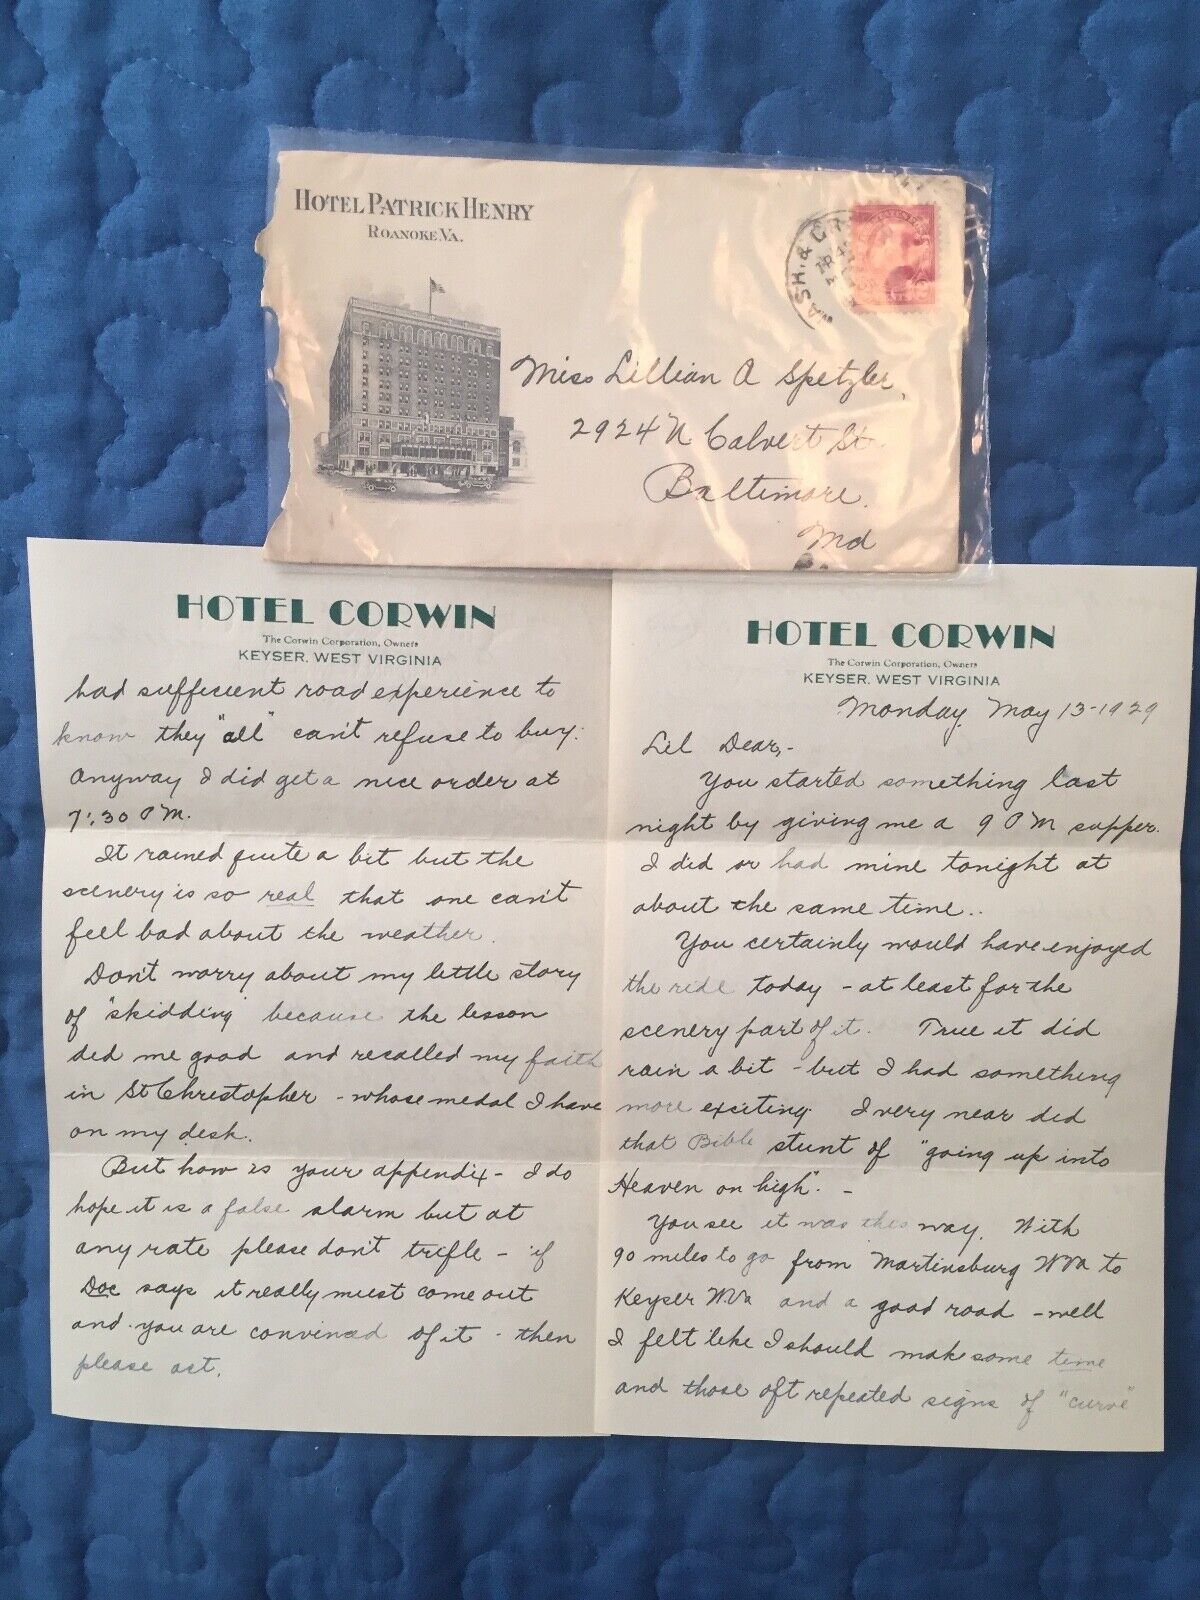 HOTEL PATRICK HENRY
ROANOKE VA.
WASH. &
Miss Lillian A Spetzler,
2924 N Calvert St.
Baltimore.
Md
HOTEL CORWIN
The Corwin Corporation, Owners
KEYSER, WEST VIRGINIA
had sufficient road experience to
know they "all" can't refuse to buy.
Anyway I did get a nice order at
7:30 PM.
It rained quite a bit but the
scenery is so real that one can't
feel bad about the weather.
Don't worry about my little story
of "skidding" because the lesson
did me good and recalled my faith
in St Christopher - whose medal I have
on my desk.
But how is your appendix - I do
hope it is a false alarm but at
any rate please don't trifle - if
Doc says it really must come out
and you are convinced of it - then
please act.
HOTEL CORWIN
The Corwin Corporation, Owners
KEYSER, WEST VIRGINIA
Monday May 13-1929
Lil Dear,-
You started something last
night by giving me a 9 PM supper.
I did or had mine tonight at
about the same time..
You certainly would have enjoyed
the ride today - at least for the
scenery part of it. True it did
rain a bit - but I had something
more exciting. I very near did
that Bible stunt of "going up into
Heaven on high". -
You see it was this way. With
90 miles to go from Martinsburg W Va to
Keyser W.Va and a good road - well
I felt like I should make some time
and those oft repeated signs of "curve"